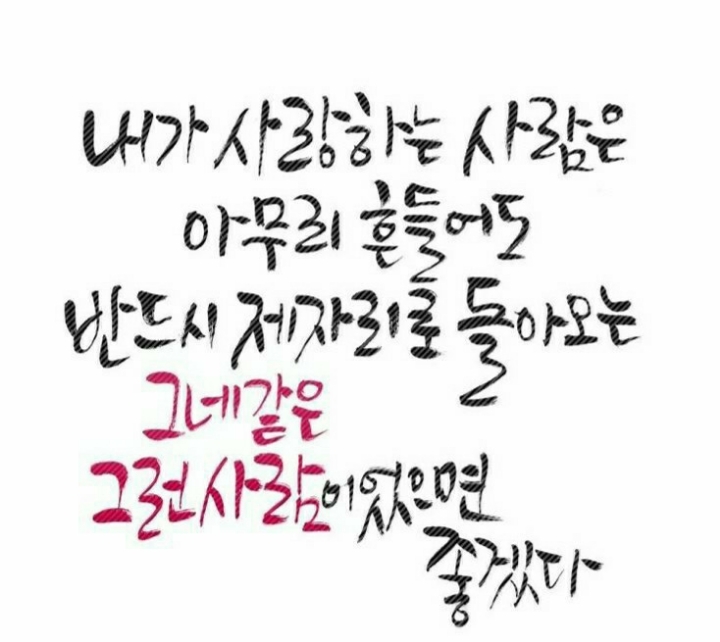 내가 사랑하는 사람은
아무리 흔들어도
반드시 제자리로 돌아오는
그네같은
그런사람이었으면
좋겠다